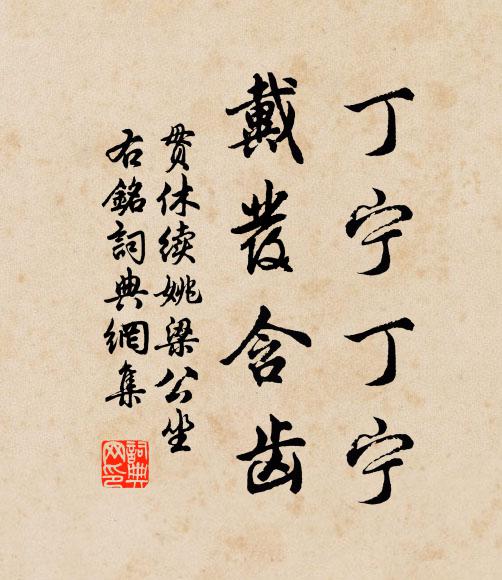 丁宁丁宁
戴發含齿
贯休续姚梁公坐
右銘詞典網集
詞典网印